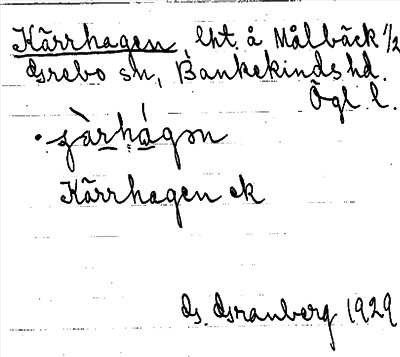 Kärrhagen, lht. å Målbäck 1/2
Grebo sn, Bankekinds hd.
Ögl l.
Kärrhagen ek
G. Granberg 1929